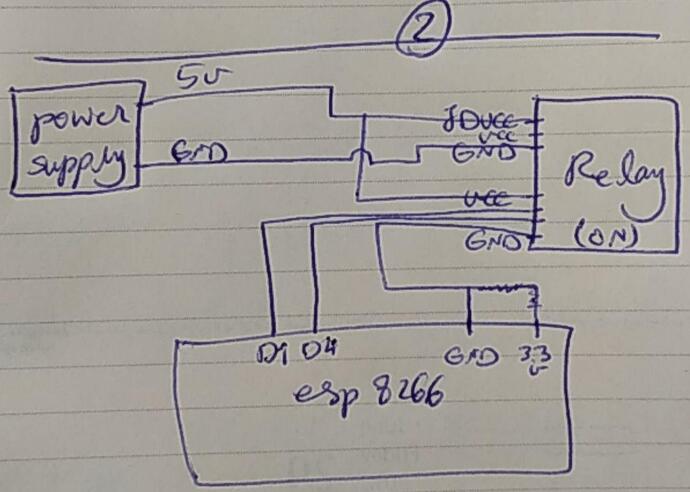 2
5v
power
supply
GND
JDVCC
VCC
GND
VCC
GND
Relay
(ON)
D1 D4 GND 3.3
v
esp 8266